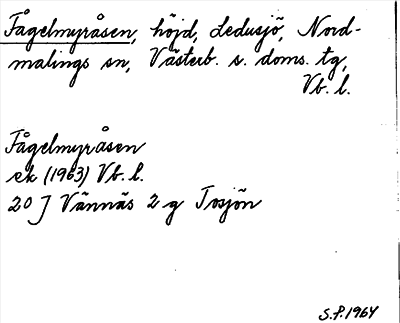 Fågelmyråsen, höjd, Ledusjö, Nord-
malings sn, Västerb. s. doms. tg,
Vb. l.
Fågelmyråsen
ek (1963) Vb. l.
20 J Vännäs 2 g Tosjön
S.P. 1964